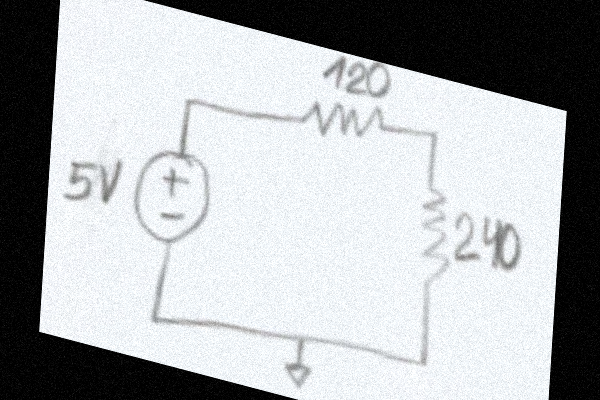 120
5V
+
-
240